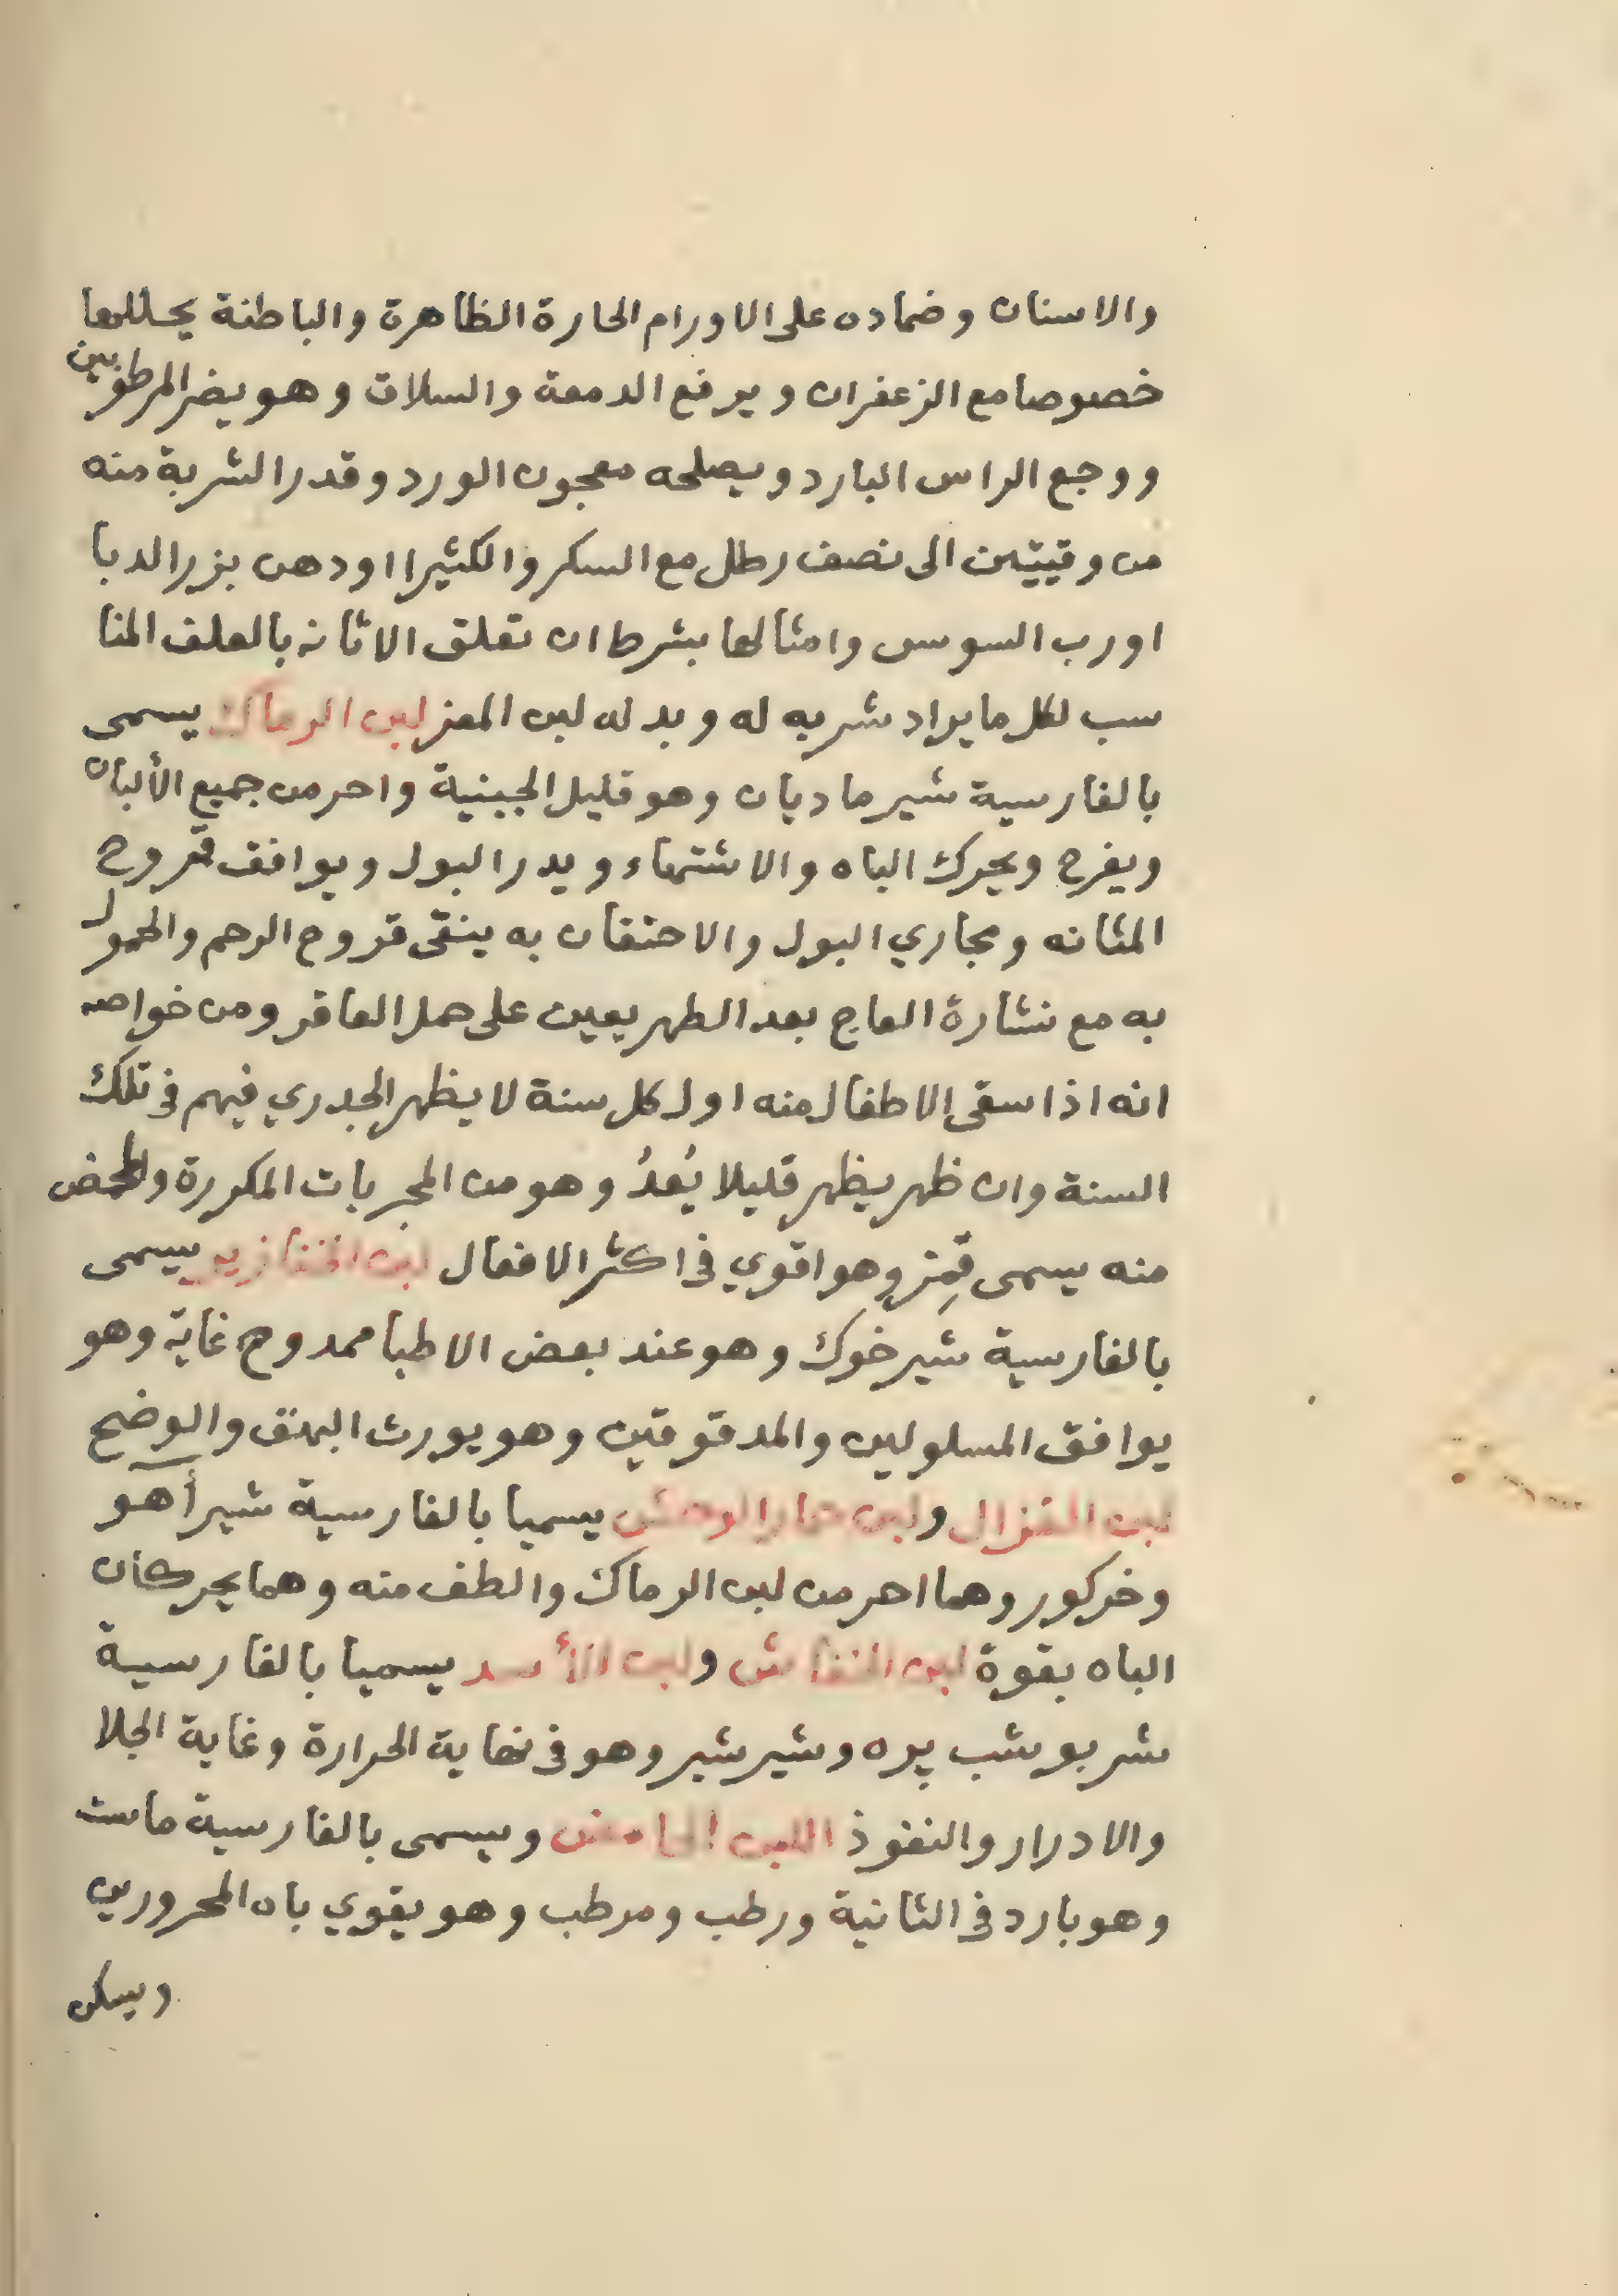 والاسنان وضماده على الاورام الحارة الظاهرة والباطنة يحللها
خصوصا مع الزعفران ويرفع الدمعة والسلاق وهو يضر المرطوبين
ووجع الراس البارد ويصلحه معجون الورد وقدر الشربة منه
من وقيتين الى نصف رطل مع السكر والكثيرا او دهن بزر الدبا
او رب السوس وامثالها بشرط ان تعلق الاتانه بالعلف المنا
سب لكل ما يراد شربه له وبدله لبن المعز لبن الرماك يسمى
بالفارسية شير ماديان وهو قليل الجبنية واحر من جميع الألبان
ويفرح ويحرك الباه والاشتهاء ويدر البول ويوافق قروح
المثانه ومجاري البول والاحتقان به ينقى قروح الرحم والحمول
به مع نشارة العاج بعد الطهر يعين على حمل العاقر ومن خواصه
انه اذا سقى الاطفال منه اول كل سنة لا يظهر الجدري فيهم في تلك
السنة وان ظهر يظهر قليلا يُعدُ وهو من المجربات المكررة والحمض
منه يسمى قِمَز وهو اقوي في اكثر الافعال لبن الخنازير يسمى
بالفارسية شير خوك وهو عند بعض الاطبا ممدوح غاية وهو
يوافق المسلولين والمدقوقين وهو يورث البهق والوضح
لبن الغزال ولبن حمار الوحش يسميا بالفارسية شير أهو
وخركور وهما احر من لبن الرماك والطف منه وهما يحركان
الباه بقوة لبن الخفاش ولبن الأسد يسميا بالفارسية
شربو شب پره وشير شير وهو في نهاية الحرارة وغاية الجلا
والادرار والنفوذ اللبن الحامض ويسمى بالفارسية ماست
وهو بارد في الثانية ورطب ومرطب وهو يقوي باه المحرورين
ويسكن